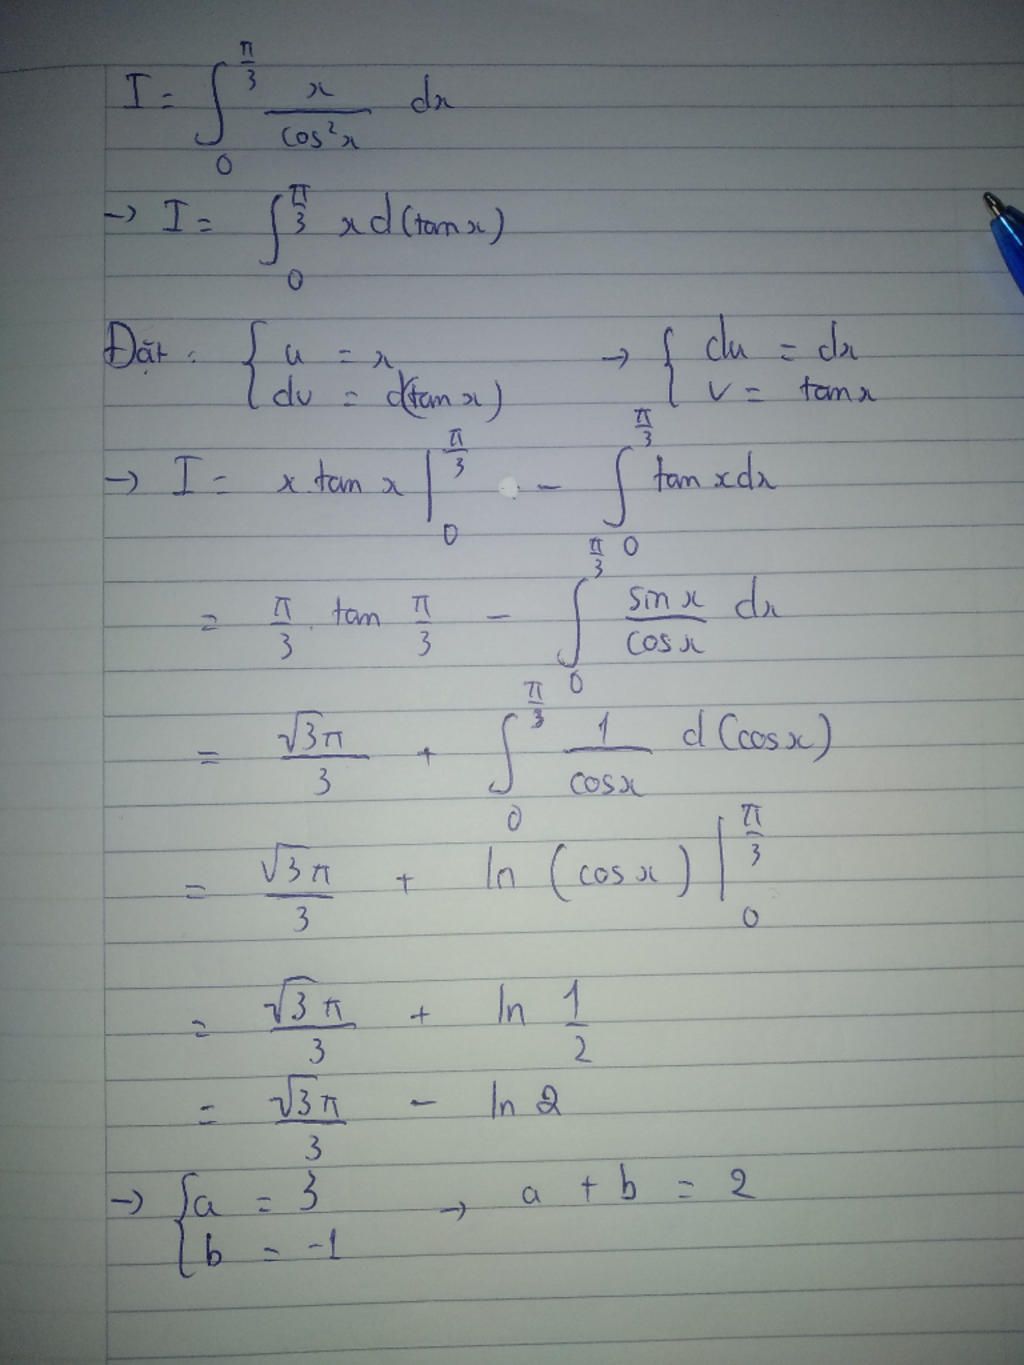 I = ∫₀^(π/3) x/cos²x dx
→ I = ∫₀^(π/3) x d(tan x)
Đặt : { u = x → { du = dx
{ dv = d(tan x) { v = tan x
→ I = x.tan x |₀^(π/3) - ∫₀^(π/3) tan x dx
= π/3 . tan π/3 - ∫₀^(π/3) sin x/cos x dx
= √3π/3 + ∫₀^(π/3) 1/cosx d(cosx)
= √3π/3 + ln (cos x) |₀^(π/3)
= √3π/3 + ln 1/2
= √3π/3 - ln 2
→ { a = 3 → a + b = 2
{ b = -1